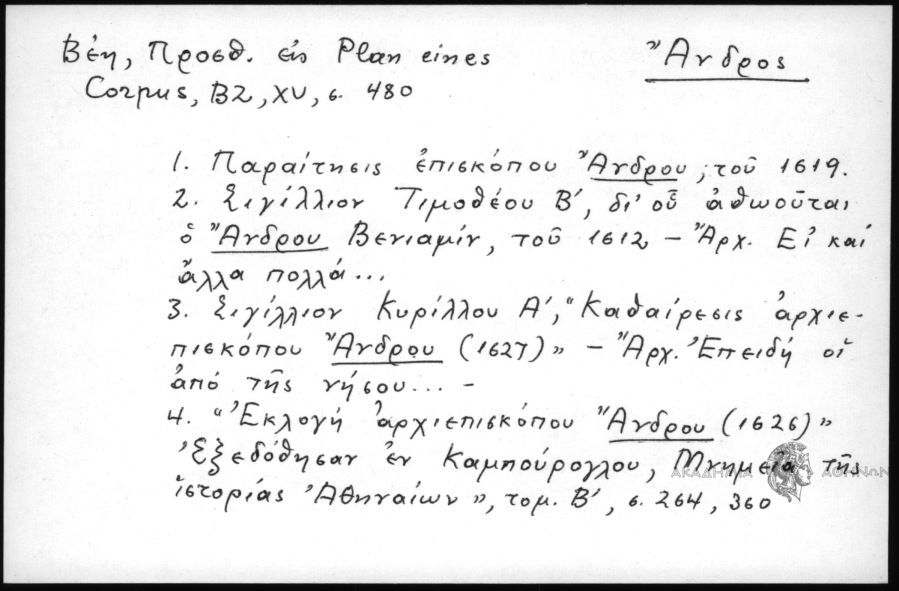 Βέη, Προσθ. εἰς Plan eines
Ἄνδρος
Corpus, BZ, XV, σ. 480
1. Παραίτησις ἐπισκόπου Ἄνδρου, τοῦ 1619.
2. Σιγίλλιον Τιμοθέου Β', δι' οὗ ἀθωοῦται
ὁ Ἄνδρου Βενιαμίν, τοῦ 1612 – Ἀρχ. Εἰ καί
ἄλλα πολλά...
3. Σιγίλλιον Κυρίλλου Α', "Καθαίρεσις ἀρχιε-
πισκόπου Ἄνδρου (1627)» – Ἀρχ. Ἐπειδή οἵ
ἀπό τῆς νήσου... –
4. "Ἐκλογή ἀρχιεπισκόπου Ἄνδρου (1626)»
Ἐξεδόθησαν ἐν Καμπούρογλου, Μνημεῖα τῆς
ἱστορίας Ἀθηναίων», τομ. Β', σ. 264, 360
ΑΚΑΔΗΜΙΑ ΑΘΗΝΩΝ